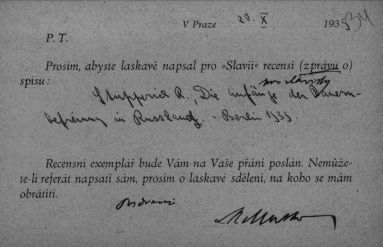 V Praze 20. X. 1935
P. T.
Prosím, abyste laskavě napsal pro »Slavii« recensi (zprávu o)
spisu:
Stupperich R., Die Anfänge der Bauern-
befreiung in Russland. - Berlin 1939
Recensní exemplář bude Vám na Vaše přání poslán. Nemůže-
te-li referát napsati sám, prosím o laskavé sdělení, na koho se mám
obrátiti.